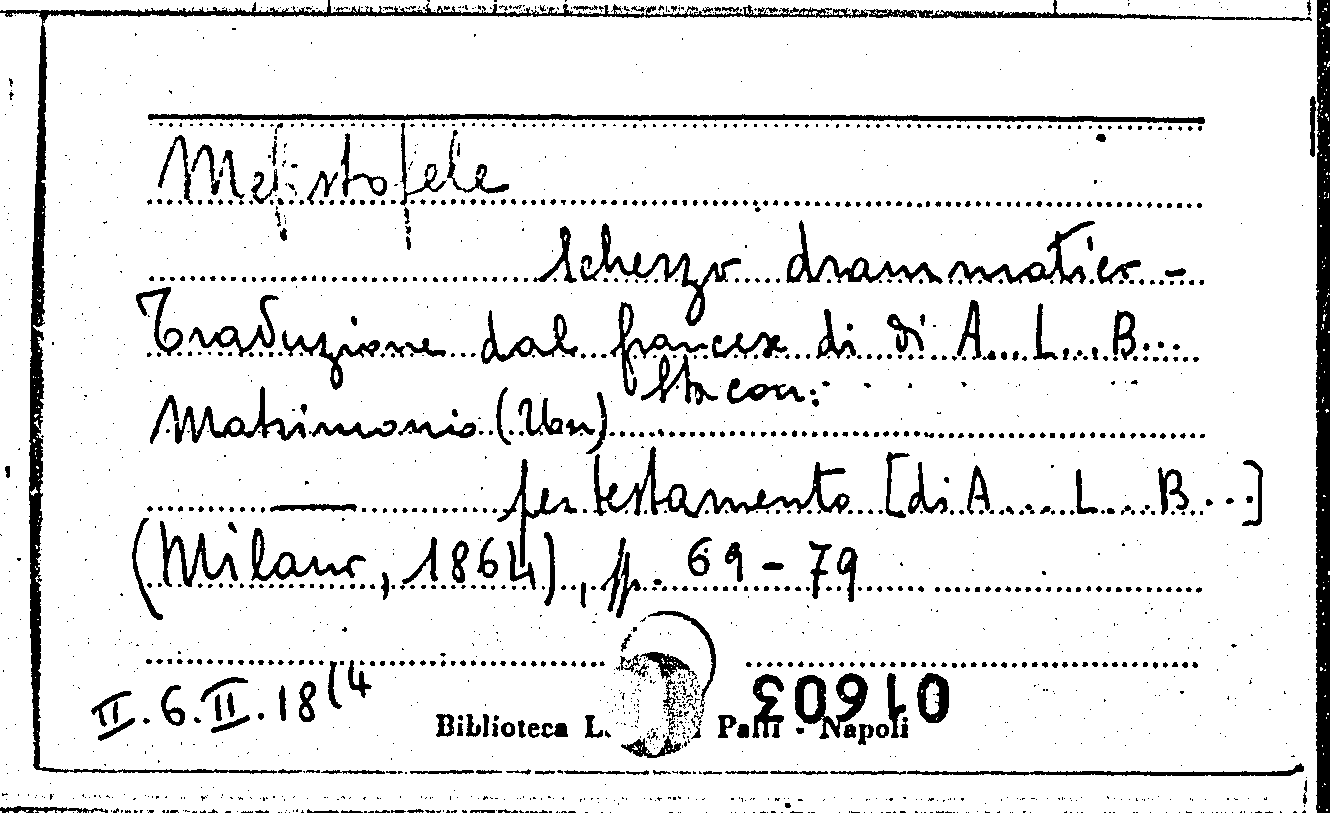 Mefistofele
scherzo drammatico -
Traduzione dal francese di di A... L... B...
sta con:
Matrimonio (Un)
per testamento [di A... L... B...]
(Milano, 1864), pp. 69-79
II.6.II.18(4
01603
Biblioteca L. Palli - Napoli